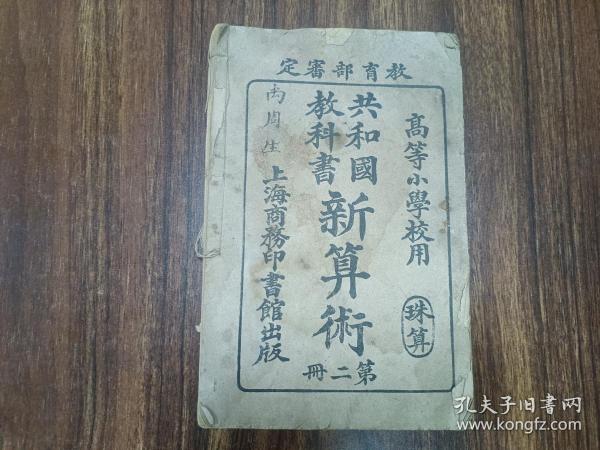 教育部審定
高等小學校用
珠算
共和國
教科書
新算術
第二冊
上海商務印書館出版
周生
孔夫子旧书网
www.kongfz.com